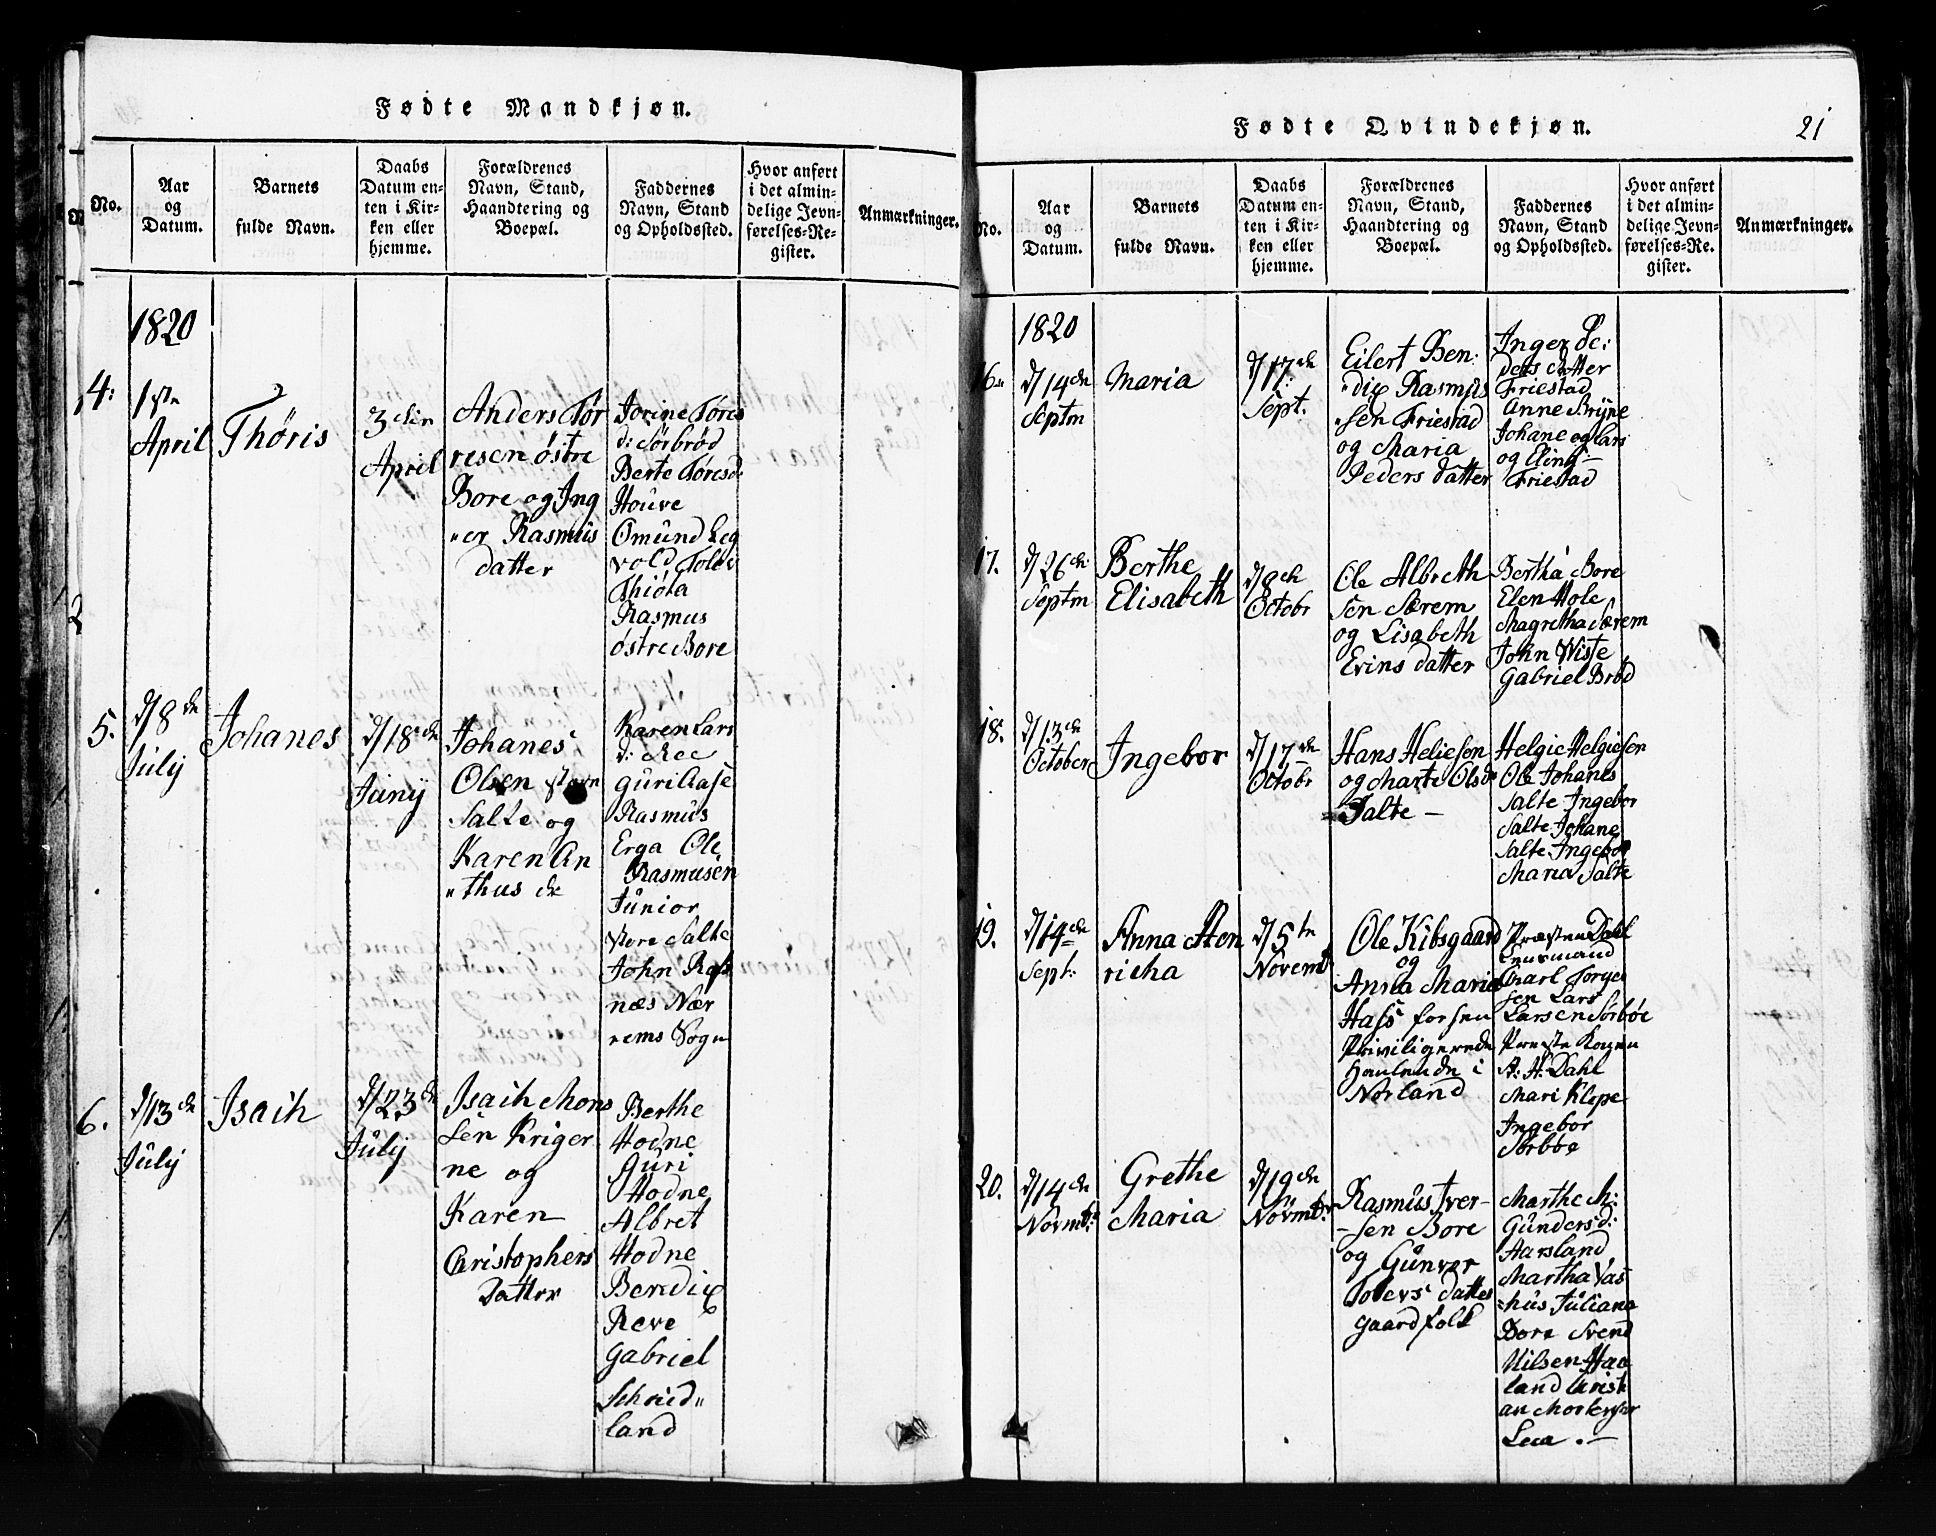 Fødte Mandkjøn.
No.
Aar
og
Datum.
Barnets
fulde Navn.
Daabs
Datum en-
ten i Kir-
ken eller
hjemme.
Forældrenes
Navn, Stand,
Haandtering og
Boepæl.
Faddernes
Navn, Stand
og Opholdssted.
Hvor anført
i det almin-
delige Jevn-
førelses-Re-
gister.
Anmærkninger.
1820
4:
1ste
April
Thøris
3den
April
Anders Tør
resen østre
Bore og Ing
"er Rasmus
datter
Jorine Tøres
d: Sørbrød
Berte Tøresd
Houve
Omund Leg
vold Tolev
Thiøta
Rasmus
østre Bore
5.
d/8de
July
Johanes
d/18de
Juny
Johanes
Olsen
Salte og
Karen An
"thus dr
Karen Lars
d: Ree
Guri Aase
Rasmus
Erga Ole
Rasmusen
Junior
Store Salte
John
næs Nær
rems Sogn
6.
d/13de
July
Isaih
d/23de
July
Isaih Mons
sen Kriger
ne og
Karen
Christophers
Datter
Berthe
Hodne
Guri
Hodne
Albret
Hodne
Benedix
Reve
Gabriel
Schrud"
land
Fødte Qvindekjøn.
21
No.
Aar
og
Datum.
Barnets
fulde Navn.
Daabs
Datum en-
ten i Kir-
ken eller
hjemme.
Forældrenes
Navn, Stand,
Haandtering og
Boepæl.
Faddernes
Navn, Stand
og Opholdssted.
Hvor anført
i det almin-
delige Jevn-
førelses-Re-
gister.
Anmærkninger.
1820
16.
d/14de
Septm
Maria
d/17de
Sept.
Eilert Ben:
"dix Rasmus
"sen Friestad
og Maria
Peders datter
Inger Pe:
ders datter
Friestad
Anne Bryne
Johane og Lars
og Eling
Friestad
17.
d/26de
Septm
Berthe
Elisabeth
d/8de
Octobr
Ole Albreth
sen Særem
og Lisabeth
Evins datter
Bertha Bore
Elen Hole
Magretha Særem
John Wiste
Gabriel Brød
18.
d/13de
October
Ingebor
d/17de
Octobr
Hans Heliesen
og Marte Olsdr
Salte —
Helgie Helgiesen
Ole Johanes
Salte Ingebor
Salte Johane
Salte Ingebor
Maria Salte
19.
d/19de
Sept:
Anna Hen
richa
d/5te
Novemb
Ole Kibsgaard
og
Anna Maria
Hass forhen
Priviligerede
Handlende i
Norland
Præsten Dahl
Lensmand
Charl Torger
sen Lars
Larsen Sørbøe
Præste Konen
A: H. Dahl
Mari Klepe
Ingebor
Sørbøe
20.
d/14de
Novmb:
Grethe
Maria
d/19de
Novmb:
Rasmus Iver-
-sen Bore
og Gunver
Tolevs datter
gaardfolk
Marthe M:
Gunders d:
Aarsland
Martha Vas
=hus Juliana
Bore Svend
Nilsen Haa
land Christi
an Mortensen
Leea .—